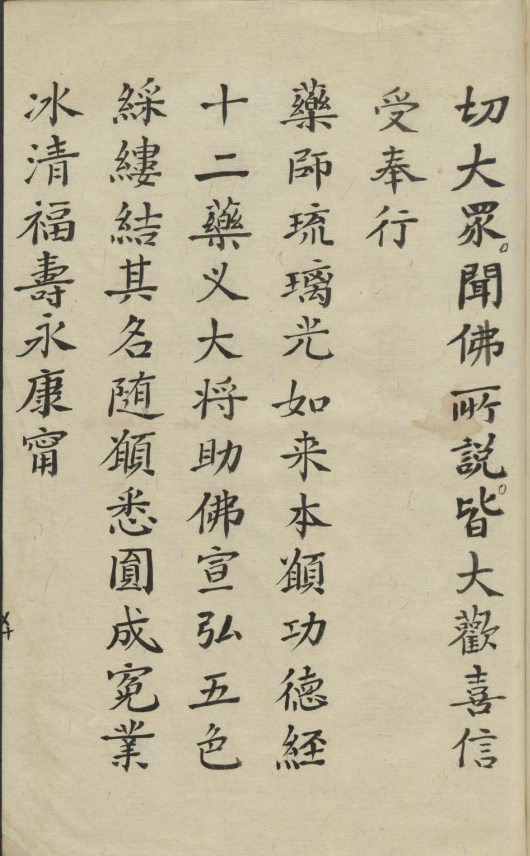 切大眾。聞佛所説。皆大歡喜信
受奉行
藥師琉璃光如来本願功德経
十二藥义大将助佛宣弘五色
綵縷結其名随願悉圓成寃業
冰清福壽永康甯